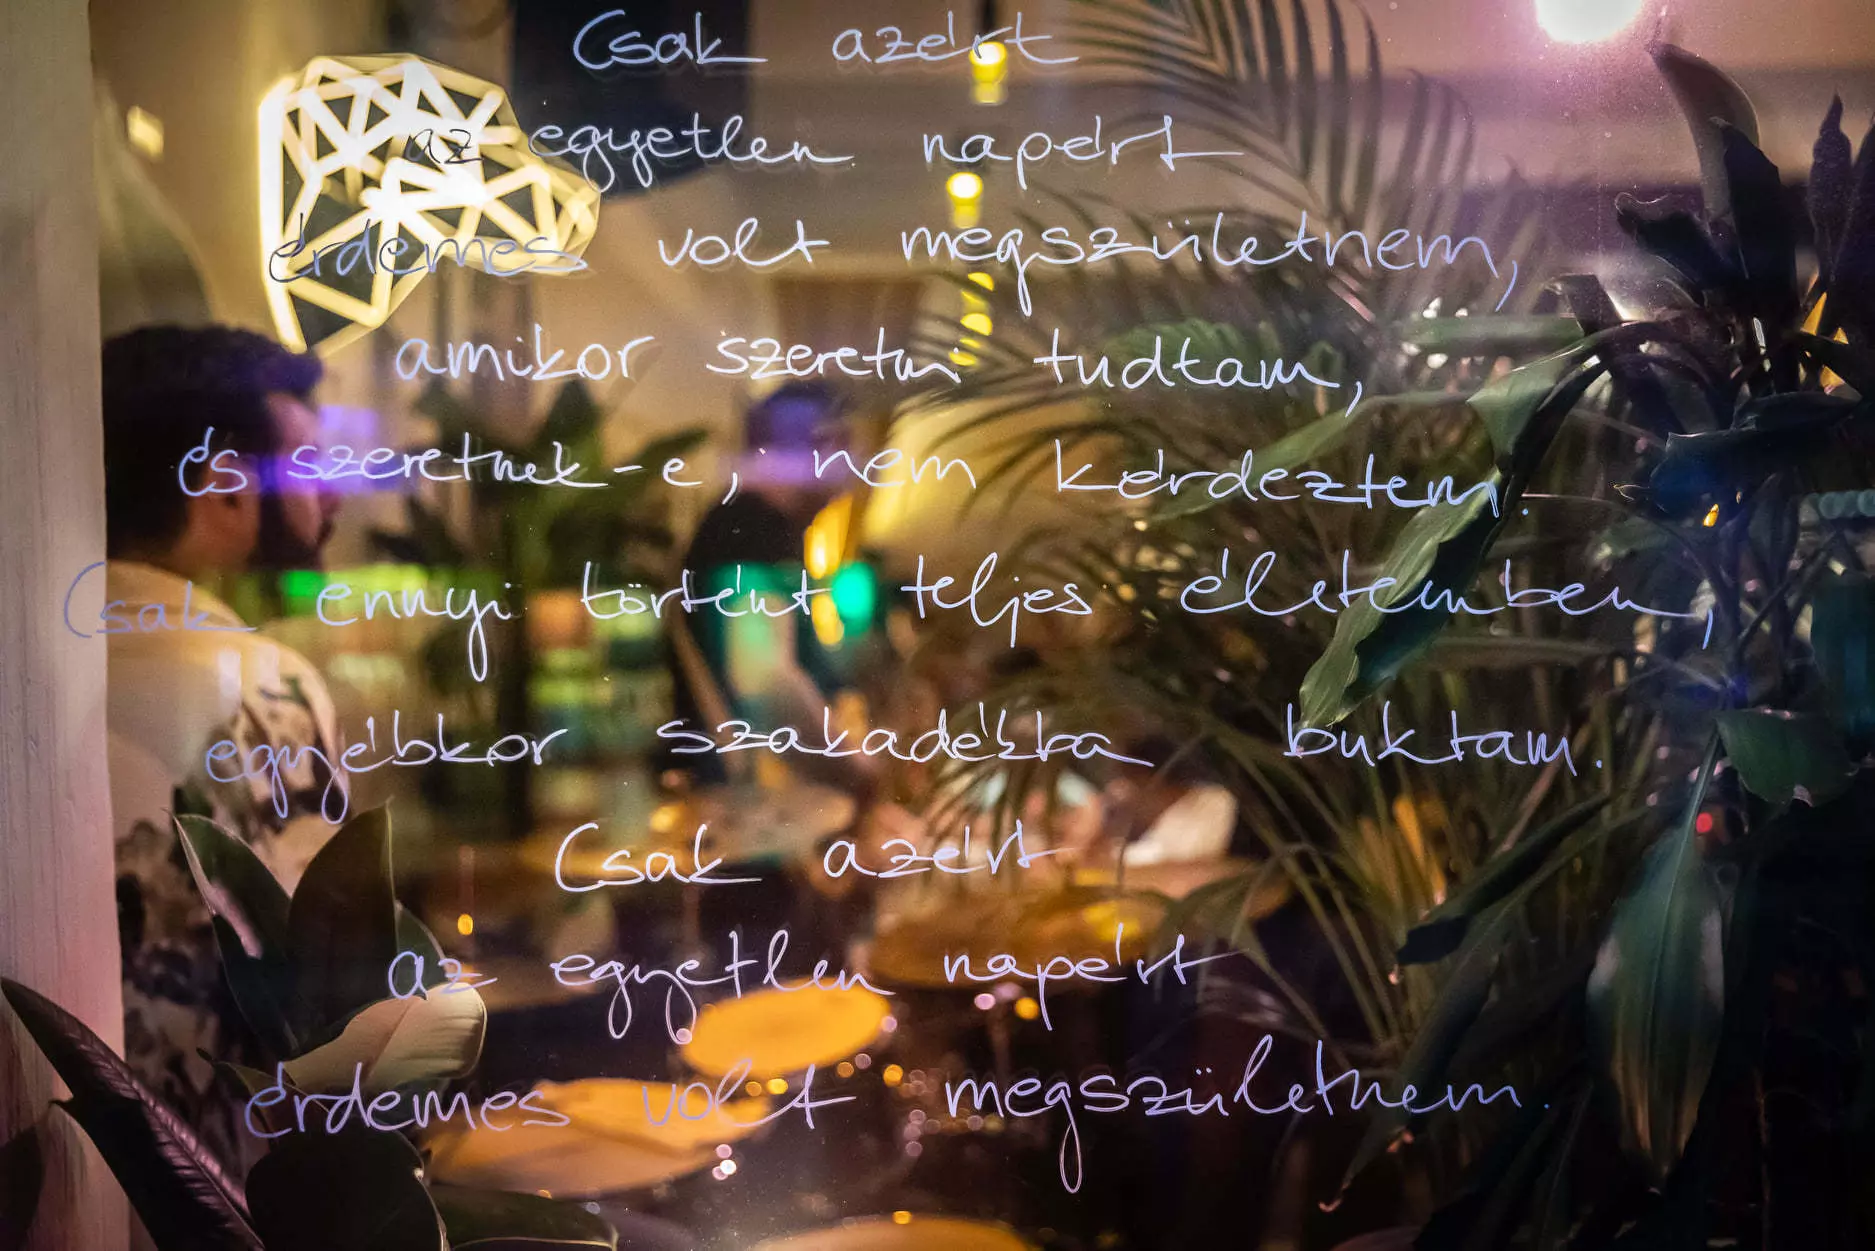 Csak azért
az egyetlen napért
érdemes volt megszületnem,
amikor szeretni tudtam,
és szeretnek-e, nem kérdeztem.
Csak ennyi történt teljes életemben,
egyébkor szakadékba buktam.
Csak azért
az egyetlen napért
érdemes volt megszületnem.